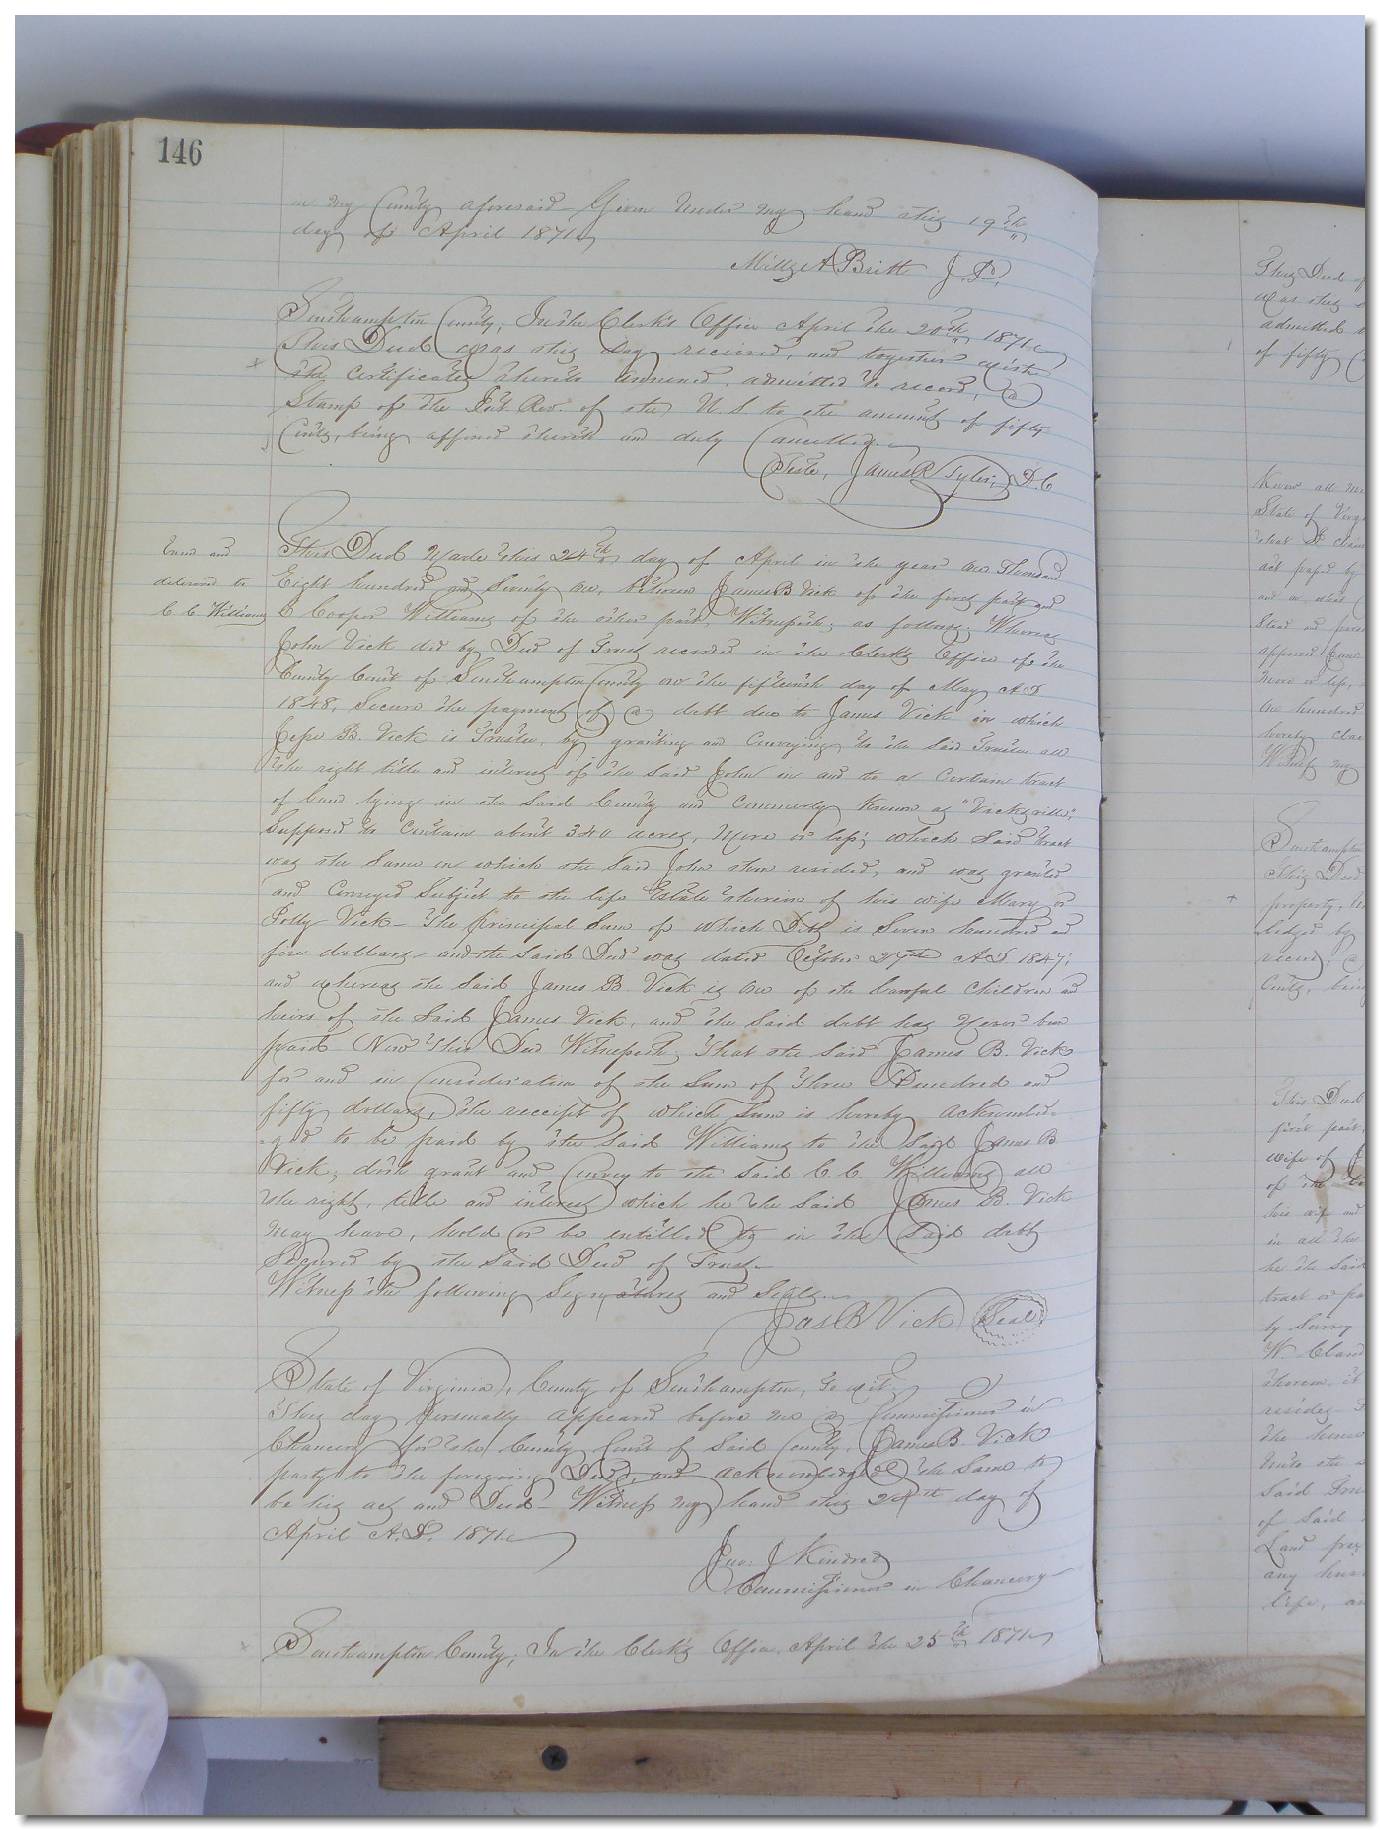 146
in my County aforesaid Given under my hand this 19th
day of April 1871
Mills A Britt J. P.
Southampton County, In the Clerk's Office April the 20th 1871
This Deed was this day received, and together with
the Certificate thereto annexed, admitted to record, a
Stamp of the Int Rev. of the U. S to the amount of fifty
Cents, being affixed thereto and duly Cancelled.
Teste, James R Tyler, D. C
and
delivered to
C C Williams
This Deed Made this 24th day of April in the year one Thousand
Eight hundred and Seventy one, between James B Vick of the first part and
C Cooper Williams of the other part, Witnesseth; as follows; Whereas
John Vick did by Deed of Trust recorded in the Clerks Office of the
County Court of Southampton County on the fifteenth day of May A D
1848, Secure the payment of a debt due to James Vick in which
Jesse B. Vick is Trustee, by granting and Conveying to the Said Trustee all
the right title and interest of the Said John in and to a Certain tract
of land lying in the Said County and Commonly Known as "Vicksville",
Supposed to Contain about 340 acres, more or less; which Said tract
was the Same on which the Said John then resided, and was granted
and Conveyed Subject to the life Estate therein of his wife Mary or
Polly Vick - The principal Sum of which Debt is Seven hundred and
dollars - and the Said Deed was dated October 27th A D 1847;
and whereas the Said James B Vick is one of the lawful Children and
heirs of the Said James Vick, and the Said debt has never been
paid Now This Deed Witnesseth, That the Said James B. Vick
for and in Consideration of the Sum of Three Hundred and
fifty dollars, the receipt of which Sum is hereby acknowled-
-ged to be paid by the Said Williams to the Said James B
Vick, doth grant and Convey to the Said C. C. Williams all
the right, title and interest which he the Said James B. Vick
may have, hold or be entitled to in the Said debt
Secured by the Said Deed of Trust.
Witness the following Signatures and Seals.
Jas B Vick Seal
State of Virginia, County of Southampton, To wit.
This day Personally appeared before me a Commissioner in
Chancery for the County Court of Said County, James B Vick
party to the foregoing Deed, and acknowledged the Same to
be his act and Deed - Witness my hand this 24th day of
April A. D. 1871
Jno: J Kindred
Commissioner in Chancery
Southampton County; In the Clerk's Office, April the 25th 1871
This Deed
was this
admitted
of fifty
Know all me
State of Virg
that I claim
act passed by
hundred
hereby
Witness my
Southampton
This Deed
property,
record; a
Cents, bein
This Deed
first part,
wife of J
of the
his wife and
in all the
he the Said
tract or pa
by Surry
therein, it
resides
unto the
Said
of Said
Land
any
life, an